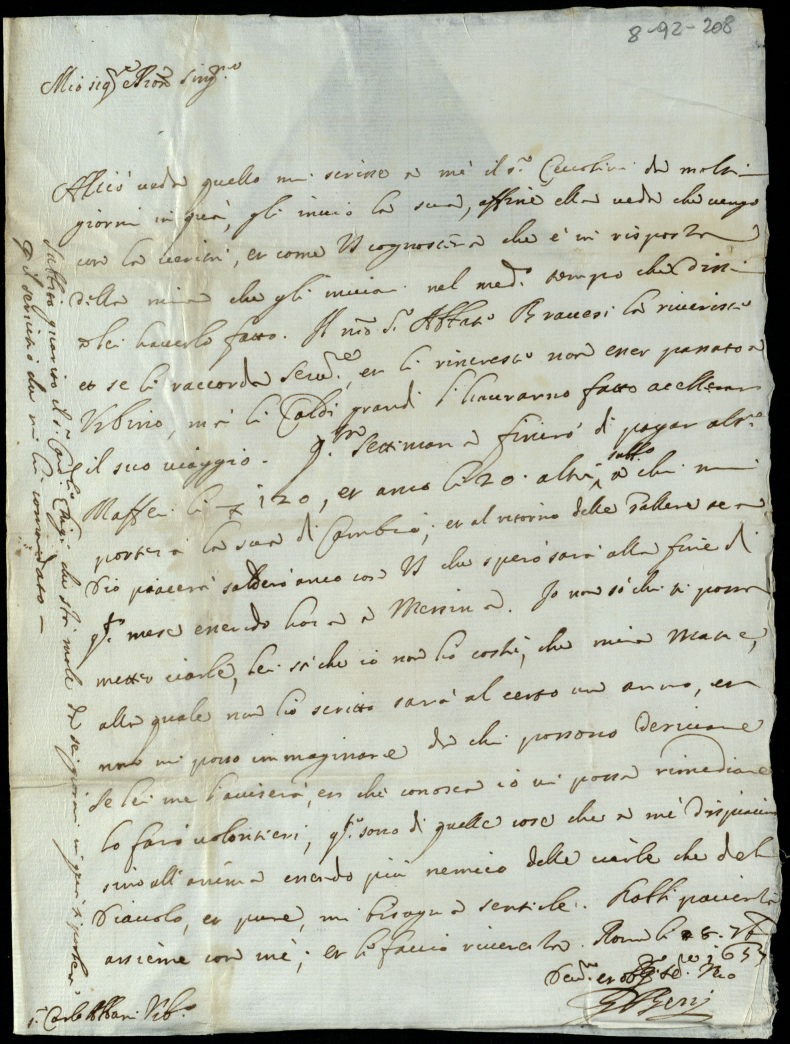 8-92-208
Mio sig.re e Pron Sing.mo
Acciò veda quello mi scrisse a mè il S.r Ceccolini da molti
giorni in quà, gli invio la sua, affine ella veda che vengo
con la verità, et come VS cognoscerà che è in risposta
della mia che gli inviai nel med.o tempo che dissi
a lei haverlo fatto. Il nro S.r Abbate Bravesi la riverisce
et se li raccorda Serv.re, et li rincresce non esser passato a
Urbino, mà li Caldi grandi l'haveranno fatto accellerare
il suo viaggio. Settimana finirò di pagar al S.re
Maffei li 120, et anco li 20 altri subbo a chi mi
porterà la sua di Cambio; et al ritorno delle Galere se a
Dio piacerà salderò anco con VS che spero sarà alla fine di
q.to mese essendo hora a Messina. Io non sò chi si possa
metter ciarle, lei sà che io non hò costì, che mia Madre,
alla quale non hò scritto sarà al certo un anno, et
non mi posso immaginare da chi possono derivare
se lei me l'aviserà, et che conosca io vi possa rimediare
lo farò volontieri, q.te sono di quelle cose che a mè dispiaciono
sino all'anima essendo più nemico delle ciarle che del
Diavolo, et pure, mi bisogna sentirle. Habbi patienza
assieme con mè; et li faccio riverenza. Roma li 8. 1657
Dev.mo et obl.mo Se.re Vro
S.r Carlo Albani Urb.o
Subbio guarito il S.r Luigi che stà male da sei giorni in quà si porterà
il servitio che mi hà comandato —